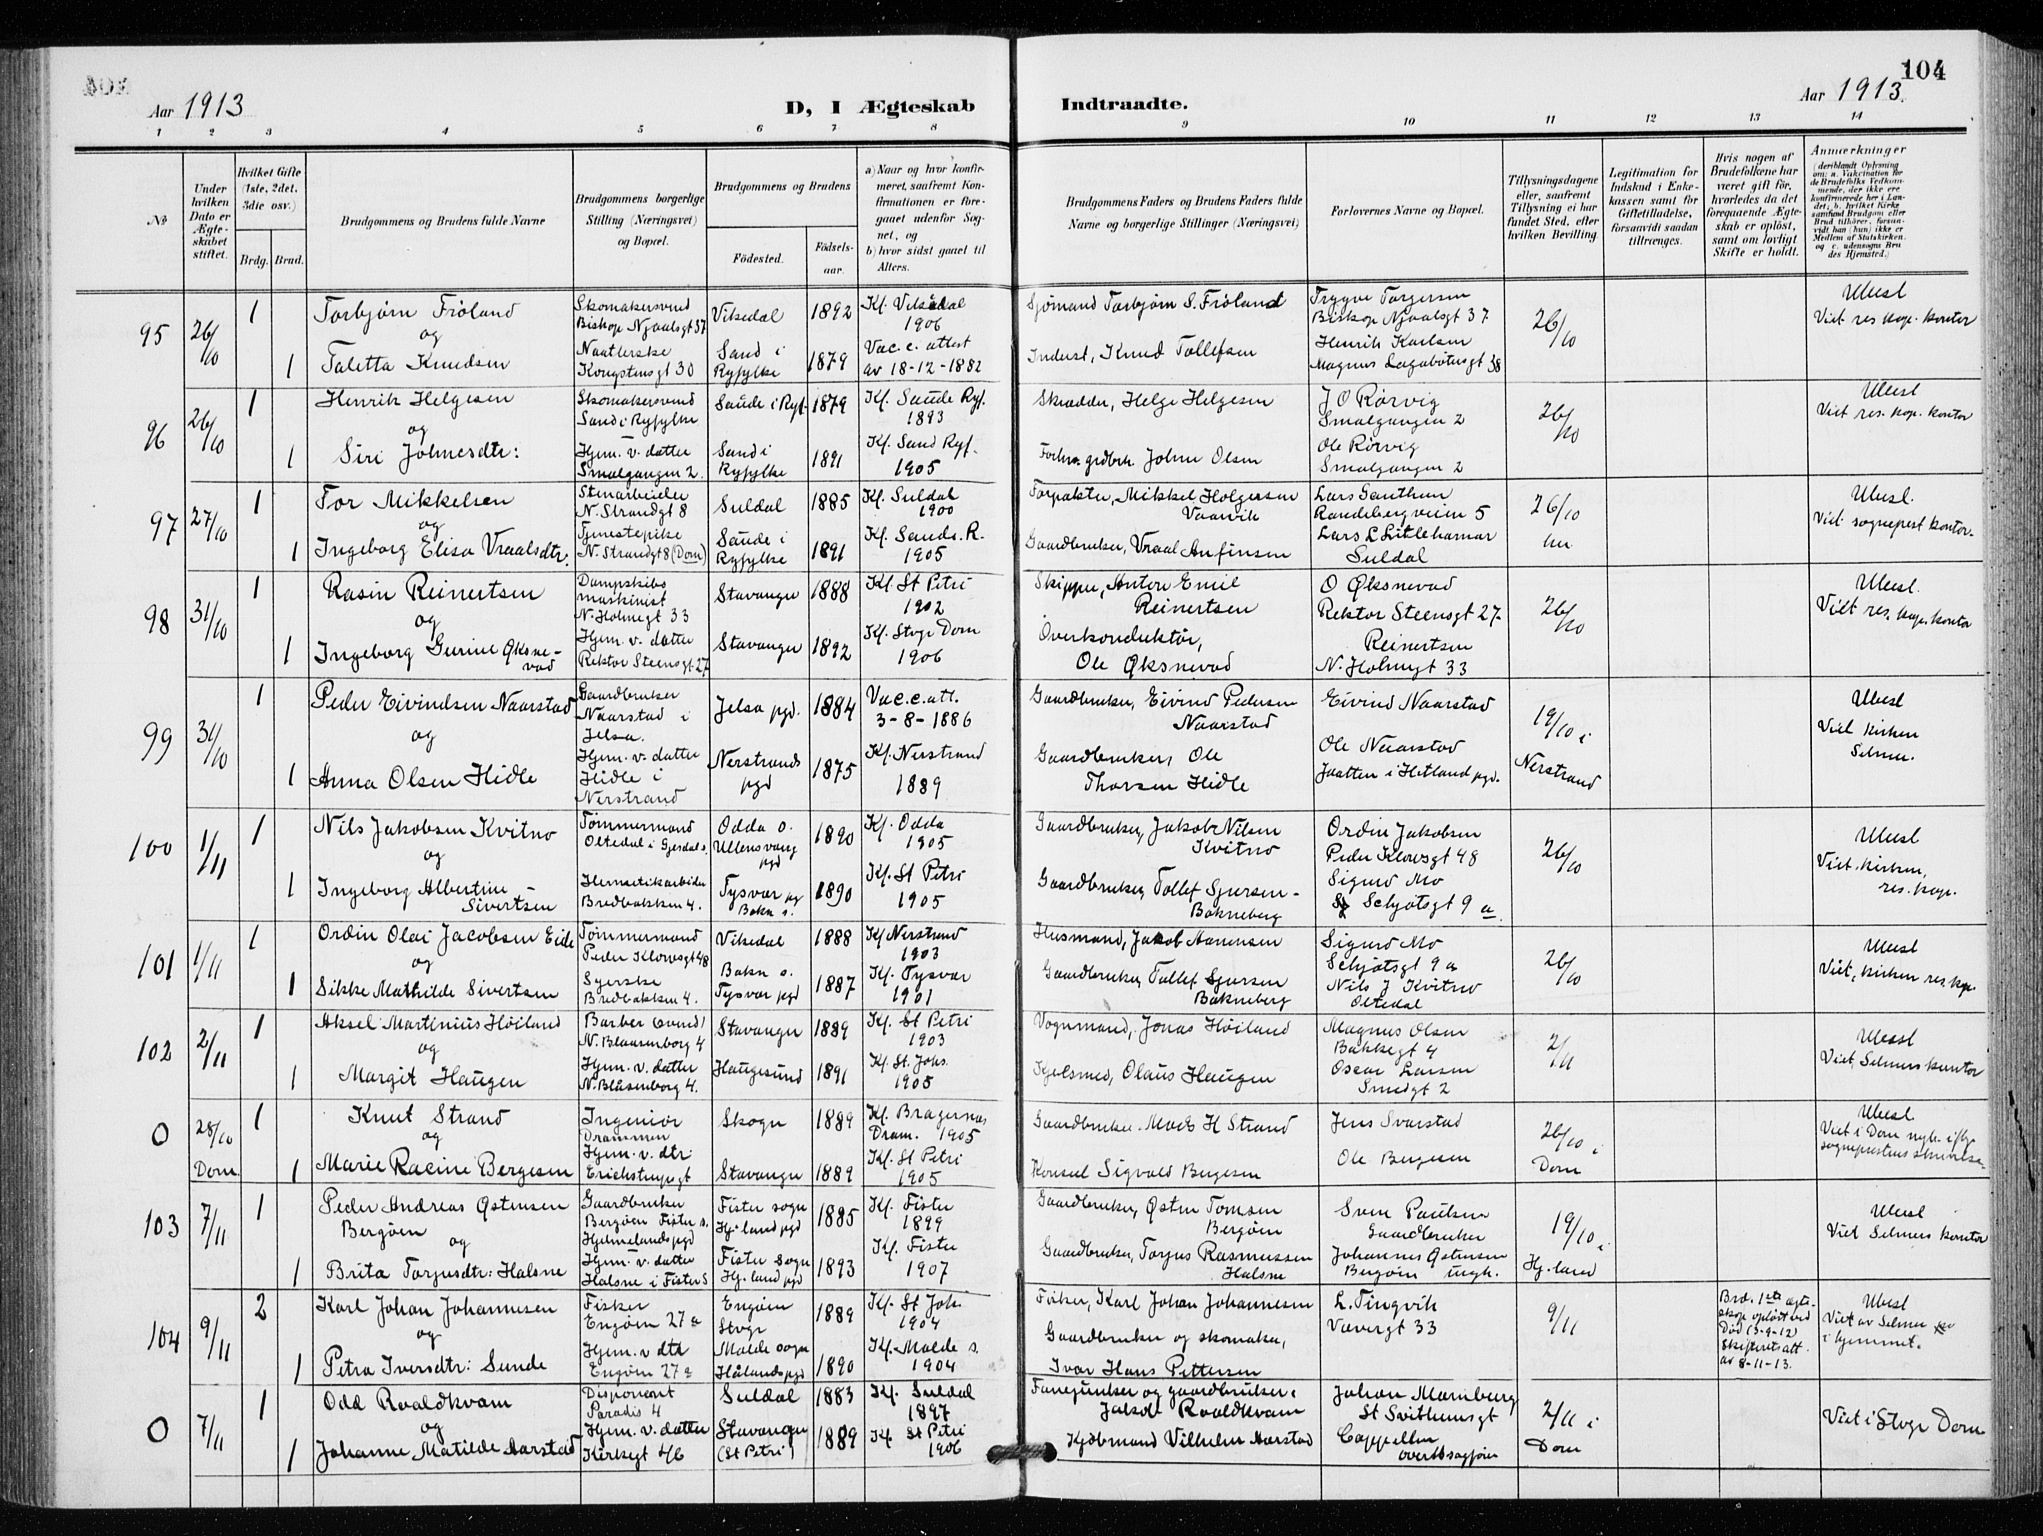 104
Aar 1913
D, I Ægteskab Indtraadte.
Aar 1913.
1 2 3 4 5 6 7 8 9 10 11 12 13 14
No
Under hvilken Dato er Ægteskabet stiftet.
Hvilket Gifte (1ste, 2det, 3die osv.)
Brdg. Brud.
Brudgommens og Brudens fulde Navne
Brudgommens borgerlige Stilling (Næringsvei) og Bopæl.
Brudgommens og Brudens
Fødested.
Fødselsaar.
a) Naar og hvor konfirmeret, saafremt Konfirmationen er foregaaet udenfor Sognet, og
b) hvor sidst gaaet til Alters.
Brudgommens Faders og Brudens Faders fulde Navne og borgerlige Stillinger (Næringsvei)
Forlovernes Navne og Bopæl.
Tillysningsdagene eller, saafremt Tillysning ei har fundet Sted, efter hvilken Bevilling
Legitimation for Indskud i Enkekassen samt for Giftetilladelse, forsaavidt saadan tiltrænges.
Hvis nogen af Brudefolkene har været gift før, hvorledes da det foregaaende Ægteskab er opløst, samt om lovligt Skifte er holdt.
Anmærkninger
(deriblandt Oplysning om: a. Vakcination for de Brudefolks Vedkommende, der ikke ere konfirmerede her i Landet, b. hvilket Kirkesamfund Brudgom eller Brud tilhører, forsaavidt han (hun) ikke er Medlem af Statskirken, og c. udensogns Brudes Hjemsted.)
95 26/10 1 Torbjørn Frøland Skomakersvend Biskop Njaalsgt 37 Vikedal 1892 Kf. Vikedal 1906 Sjømand Torbjørn S. Frøland Trygve Torgersen Biskop Njaalsgt 37 26/10 Ubesl Viet res. kap. kontor
og
1 Taletta Knudsen Naatlerske Kongstensgt 30 Sand i Ryfylke 1879 Vac. c. attest av 18-12-1882 Inderst, Knud Tollefsen Henrik Karlsen Magnus Lagabøtersgt 38
96 26/10 1 Henrik Helgesen Skomakersvend Sand i Ryfylke Saude i Ryf. 1879 Kf. Saude Ryf. 1893 Skrædder, Helge Helgesen J O Rørvig Smalgangen 2 26/10 Ubesl Viet res. kap. kontor
og
1 Siri Johnesdtr: Hjem. v. datter Smalgangen 2. Sand i Ryfylke 1891 Kf. Sand Ryf. 1905 Johne Olsen Ole Rørvig Smalgangen 2
97 27/10 1 Tor Mikkelsen Stenarbeider N. Strandgt 8 Suldal 1885 Kf. Suldal 1900 Forpakter, Mikkel Holgersen Vaarvik Lars Santhun Randebergveien 5 26/10 Ubesl. Viet sogneprest kontor.
og
1 Ingeborg Elisa Vraalsdtr. Tjenestepike N. Strandgt 8 (Dom) Saude i Ryfylke 1891 Kf. Saude. R. 1905 Gaardbruker, Vraal Anfinsen Lars L Litlehamar Suldal
98 31/10 1 Rasin Reinertsen Dampskibsmaskinist N. Holmegt 33 Stavanger 1888 Kf. St Petri 1902 Skipper, Anton Emil Reinertsen O Øksnevad Rektor Steensgt 27 26/10 Ubesl. Viet res. kap. kontor
og
1 Ingeborg Gurine Øksnevad Hjem. v. datter Rektor Steensgt 27 Stavanger 1892 Kf. Stvgr Dom 1906 Overkonduktør, Ole Øksnevad Reinertsen N. Holmegt 33
99 31/10 1 Peder Eivindsen Naarstad Gaardbruker Naarstad i Jelsa. Jelsa pgd. 1884 Vac. c. att. 3-8-1886 Gaardbruker, Eivind Pedersen Naarstad Eivind Naarstad 19/10 i Nerstrand Ubesl Viet kirken Selmer.
og
1 Anna Olsen Hidle Hjem. v. datter Hidle i Nerstrand Nerstrands pgd 1875 Kf. Nerstrand 1889 Gaardbruker, Ole Thorsen Hidle Ole Naarstad Jaatten i Hetland pgd.
100 1/11 1 Nils Jakobsen Kvitno Tømmermand Oltedal i Gjesdal s. Odda s. Ullensvang pgd 1890 Kf. Odda 1905 Gaardbruker, Jakob Nilsen Kvitno Ordin Jakobsen Peder Klowsgt 48 26/10 Ubesl Viet. kirken, res. kap.
og
1 Ingeborg Albertine Sivertsen Hermetikarbeider Bredbakken 4. Tysvær pg Bokn s. 1890 Kf. St Petri 1905 Gaardbruker, Tollef Sjursen Bokneberg Sigurd Mo Schjøtsgt 9 a.
101 1/11 1 Ordin Olai Jacobsen Eide Tømmermand Peder Klowsgt 48 Vikedal 1888 Kf Nerstrand 1903 Husmand, Jakob Aanensen Sigurd Mo Schjøtsgt 9 a 26/10 Ubesl Viet, kirken res. kap.
og
1 Sikke Mathilde Sivertsen Syerske Bredbakken 4. Bokn s. Tysvær pgd 1887 Kf. Tysvær 1901 Gaardbruker, Tollef Sjursen Bokneberg Nils J Kvitno Oltedal
102 2/11 1 Aksel Martinius Høiland Barber (svend) N. Blaasenborg 4 Stavanger 1889 Kf. St Petri 1903 Vognmand, Jonas Høiland Magnus Olsen Bakkegt 4 2/11 Ubesl Viet, Selmers kontor
og
1 Margit Haugen Hjem. v. datter N. Blåsenborg 4. Haugesund 1891 Kf. St. Johs. 1905 Kjelsmed, Olaus Haugen Oscar Larsen Smedgt 2
0 28/10 Dom. 1 Knut Strand Ingeniør Drammen Skogn 1889 Kf. Bragernæs Dram. 1905 Gaardbruker. Mads H Strand Jens Svarstad 26/10 i Dom Ubesl Viet i Dom
og
1 Marie Racine Bergesen Hjem. v. dtr Erichstrupsgt Stavanger 1889 Kf. St Petri 1905 Konsul Sigvald Bergesen Ole Bergesen
103 7/11 1 Peder Andreas Østensen Bergøen Gaardbruker Bergøen Fister s. Hjelmelands pgd Fister sogn Hj.land pgd 1885 Kf. Fister 1899 Gaardbruker, Østen Tomsen Bergøen Sven Paulsen Gaardbruker 19/10 i Hj.land Ubesl Viet Selmers kontor
og
1 Brita Torjusdtr: Halsne Hjem. v. datter Halsne i Fister s Fister sogn Hj.land pgd 1893 Kf. Fister 1907 Gaardbruker, Torjus Rasmussen Halsne Johannes Østensen Bergøen ungk.
104 9/11 2 Karl Johan Johannesen Fisker Engøen 27 a Engøen Stvgr 1889 Kf. St Joh. 1904 Fisker, Karl Johan Johannesen L. Tingvik Vævergt 33 9/11 Brd. 1ste egteskap opløst ved Død (3-9-12) Skifteretsatt. av 8-11-13. Ubesl Viet av Selmer i hjemmet.
og
1 Petra Iversdtr: Sunde Hjem. v dtr Engøen 27 a Malde sogn Hålands pgd 1890 Kf. Malde s. 1904 Gaardbruker og skomaker, Ivar Hans Pettersen
0 7/11 1 Odd Roaldkvam Disponent Paradis 4 Suldal 1883 Kf. Suldal 1897 Fanejunker og gaardbruker: Jakob Roaldkvam Johan Marnburg St Svithunsgt 2/11 i Dom Viet i Stvgr Dom
og
1 Johanne Matilde Aarstad Hjem. v. datter Kirkegt 4/6 Stavanger (St Petri) 1889 Kf St Petri 1906 Kjøbmand Vilhelm Aarstad Cappellen overretssagfører